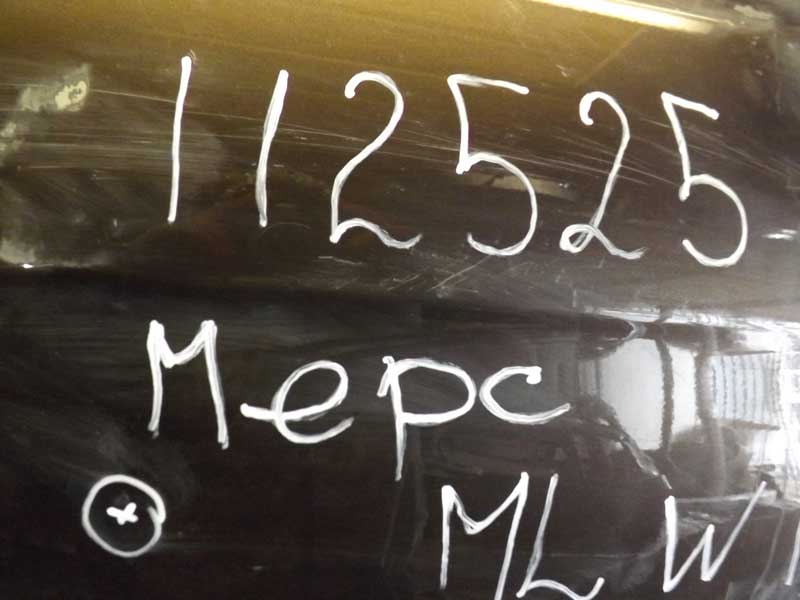 112525
Мерс
ML W